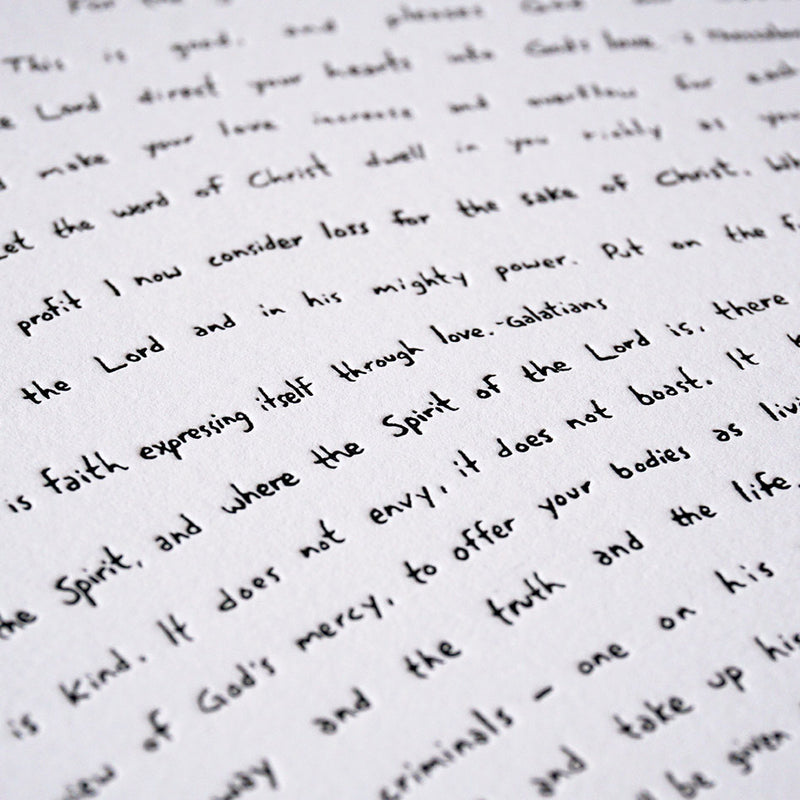 For the
This is good, and pleases God
Lord direct your hearts into God's love
make your love increase and overflow for each
Let the word of Christ dwell in you richly as you
profit I now consider loss for the sake of Christ. Wh
the Lord and in his mighty power. Put on the f
is faith expressing itself through love.-Galatians
the Spirit, and where the Spirit of the Lord is, there
is kind. It does not envy, it does not boast. It
view of God's mercy, to offer your bodies as livi
way and the truth and the life.
criminals - one on his
and take up his
be given